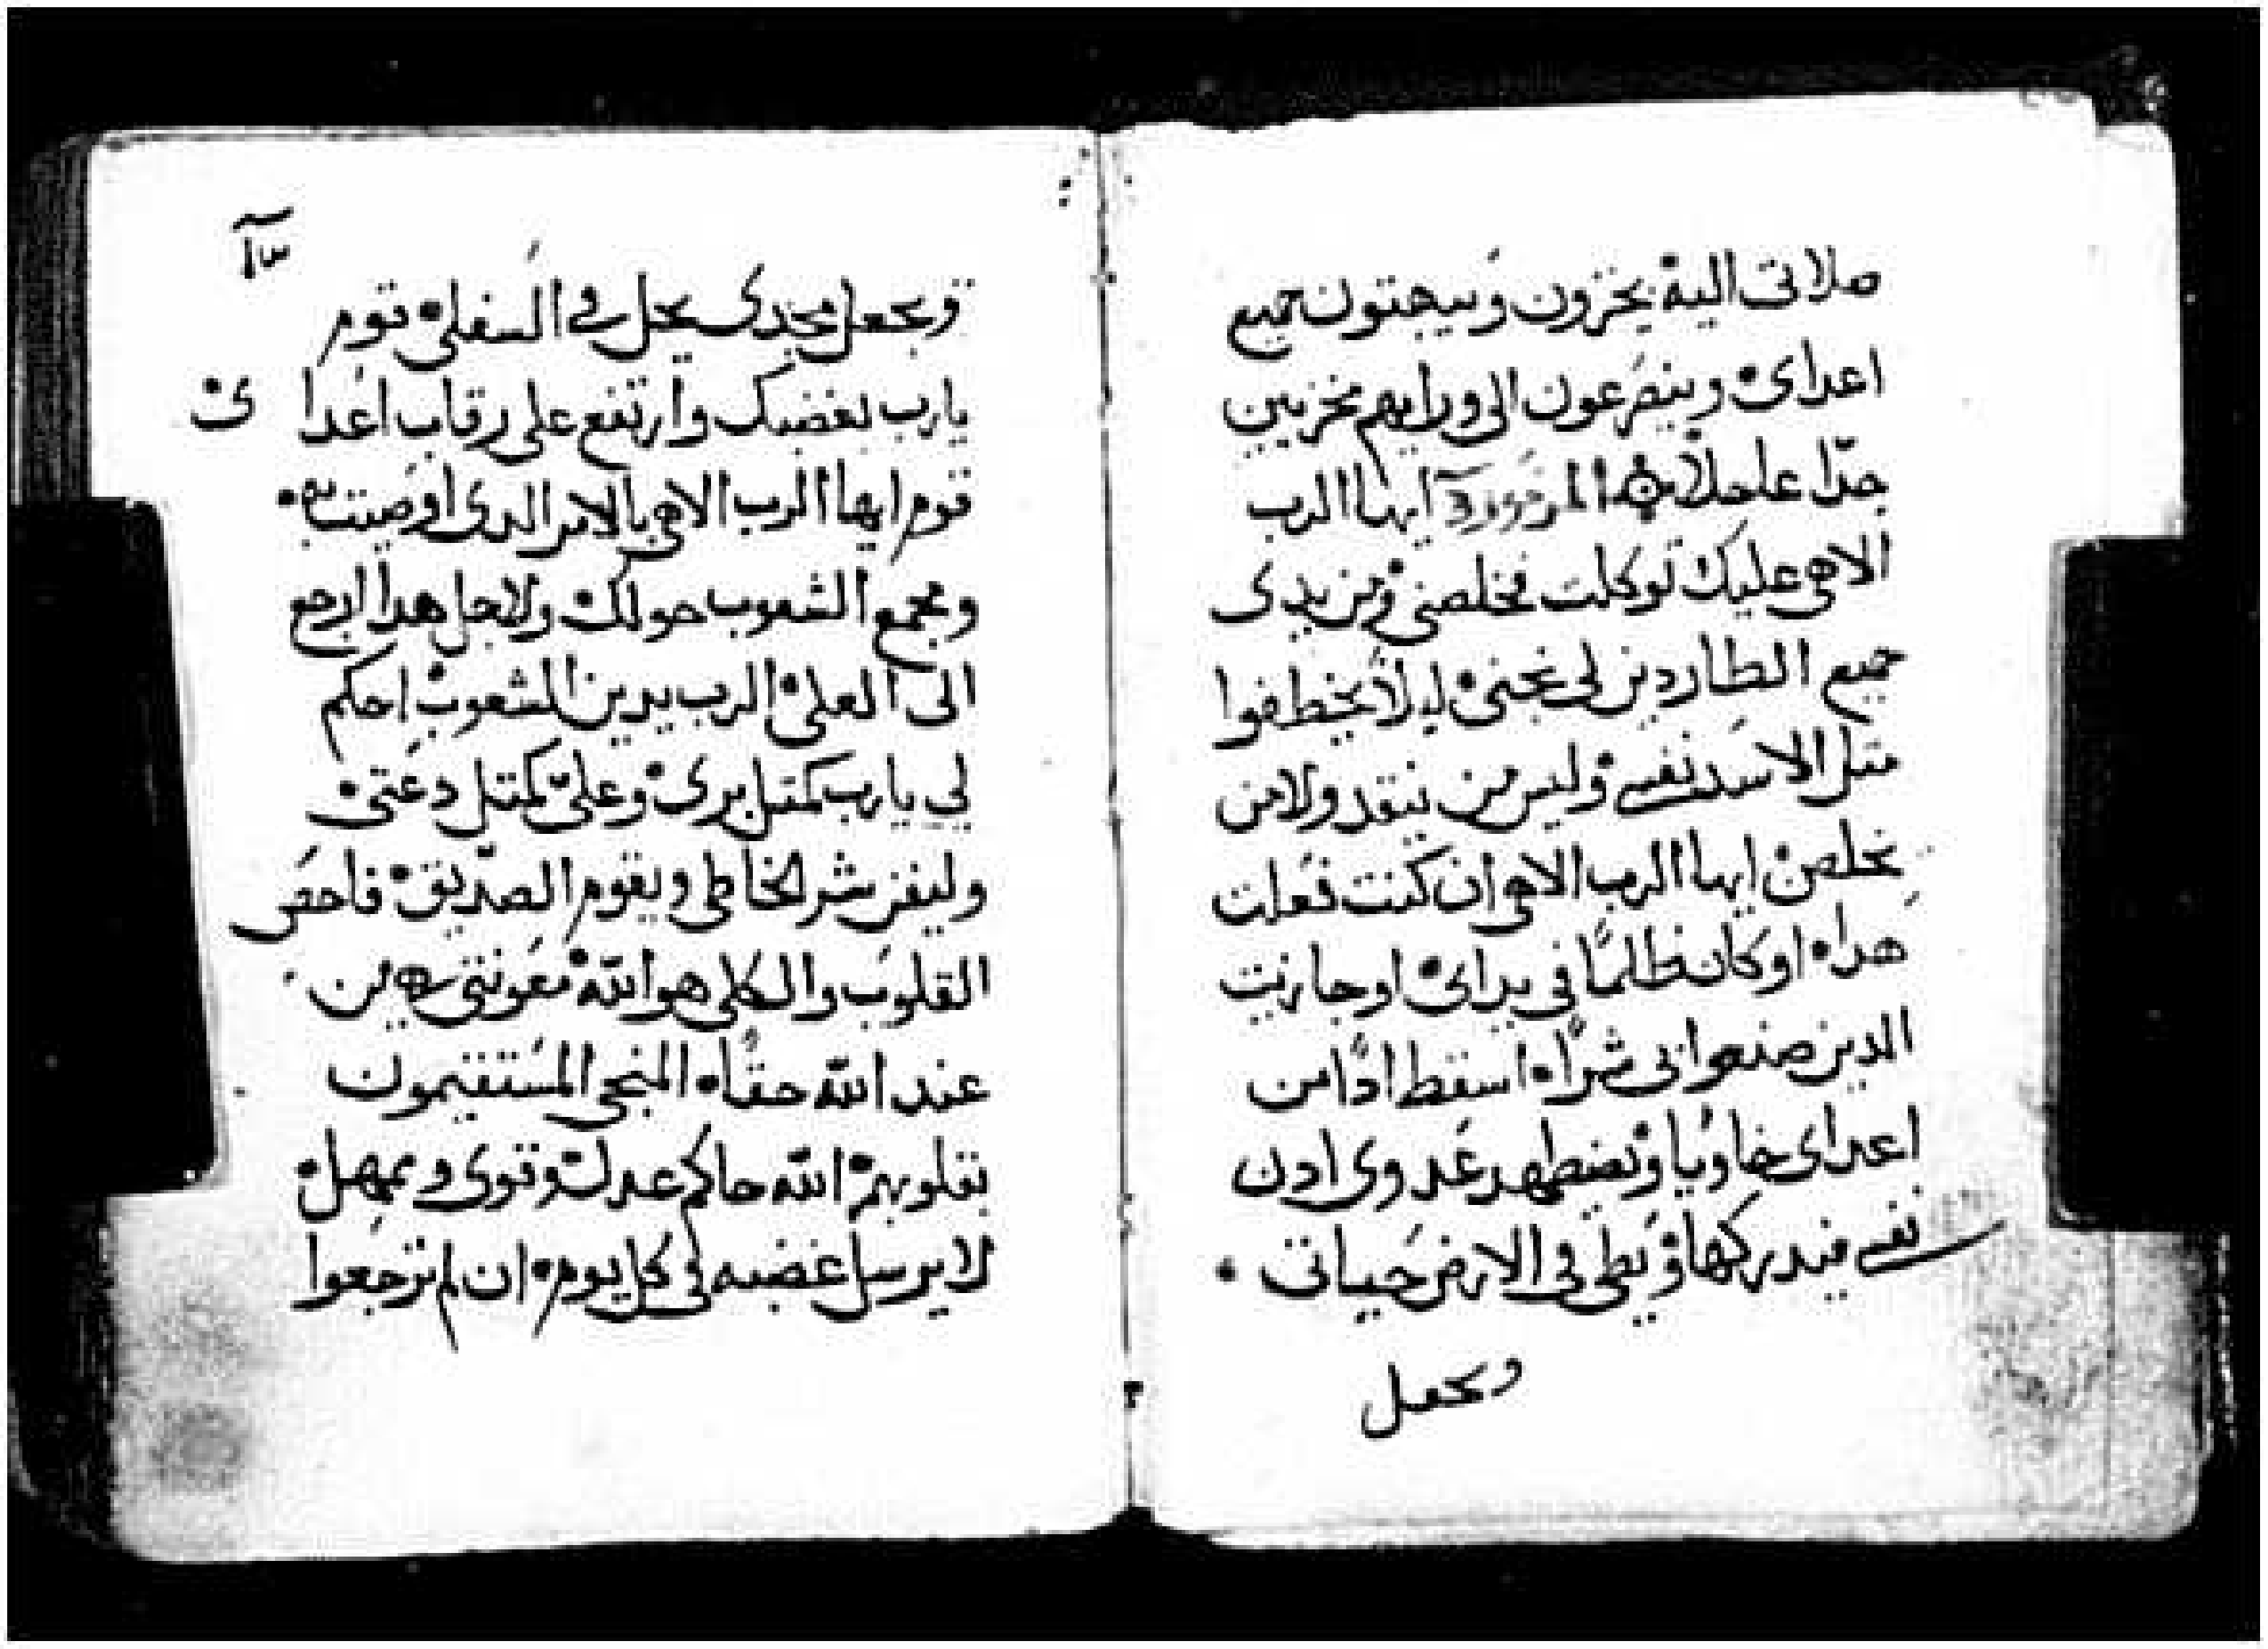 صلاتي اليه يخزون ويبهتون جميع
اعداي وينصرعون الى ورايهم مخزيين
جدّا عاجلًا المزمور ايها الرب
الاهي عليك توكلت فخلصني ومن يدي
جميع الطاردين لي نجني ليلا يخطفوا
متل الاسد نفسي وليس من ينقد ولا من
يخلص ايها الرب الاهي ان كنت فعلت
هدا او كان ظلمًا في يداي او جازيت
الدين صنعوا بي شرًا اسقط ادًا من
اعداي خاويا ويضطهد عدوي ادن
نفسي فيدركها ويطي في الارض حياتي
ويجعل
ويجعل مجدي يحل في السفلي قوم
يارب بغضبك وارتفع على رقاب اعداي
قوم ايها الرب الاهي بالامر الدي اوصيت به
ومجمع الشعوب حولك ولاجل هدا ارجع
الى العلي الرب يدين الشعوب احكم
لي يارب كمتل بري وعلي كمتل دعتي
وليفن شر الخاطي ويقوم الصدّيق فاحص
القلوب والكلى هو الله معونتي هي من
عند الله حقًا المنجي المستقيمون
بقلوبهم الله حاكم عدل وقوي وممهل
لا يرسل غضبه في كل يوم ان لم ترجعوا